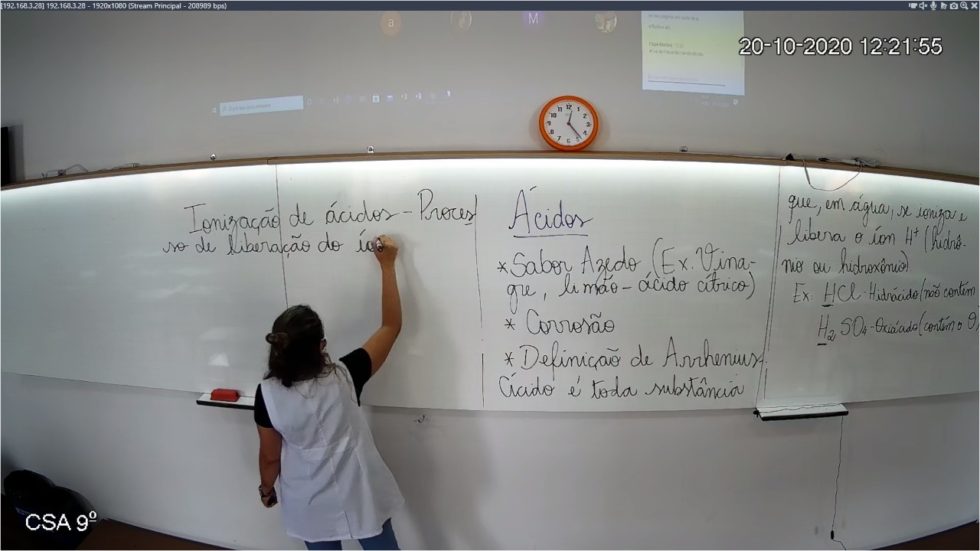 [192.168.3.28] 192.168.3.28 - 1920x1080 (Stream Principal - 208989 bps)
20-10-2020 12:21:55
Ionização de ácidos - Proces
so de liberação do ío
Ácidos
* Sabor Azedo (Ex. Vina-
gre, limão - ácido cítrico)
* Corrosão
* Definição de Arrhenius
Ácido é toda substância
que, em água, se ioniza e
libera o íon H+ (hidrô-
nio ou hidroxônio)
Ex: HCl - Hidrácido (não contém
H2SO4 - Oxiácido (contém o O)
CSA 9º